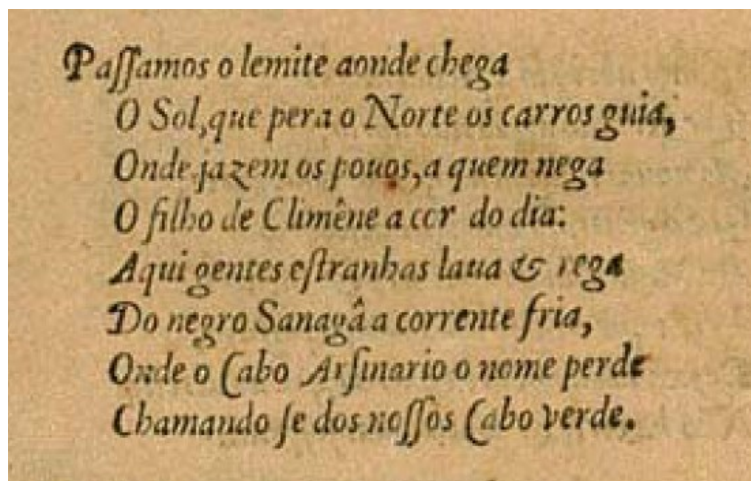 Paſſamos o lemite aonde chega
O Sol, que pera o Norte os carros guia,
Onde jazem os pouos, a quem nega
O filho de Climêne a cor do dia:
Aqui gentes eſtranhas laua & rega
Do negro Sanagâ a corrente fria,
Onde o Cabo Arſinario o nome perde
Chamando ſe dos noſſos Cabo verde.